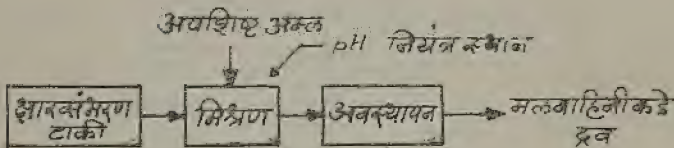 अवशिष्ट अम्ल
pH नियंत्र स्थान
क्षारसंभरण
टाकी
मिश्रण
अवस्थापन
मलवाहिनीकडे
द्रव